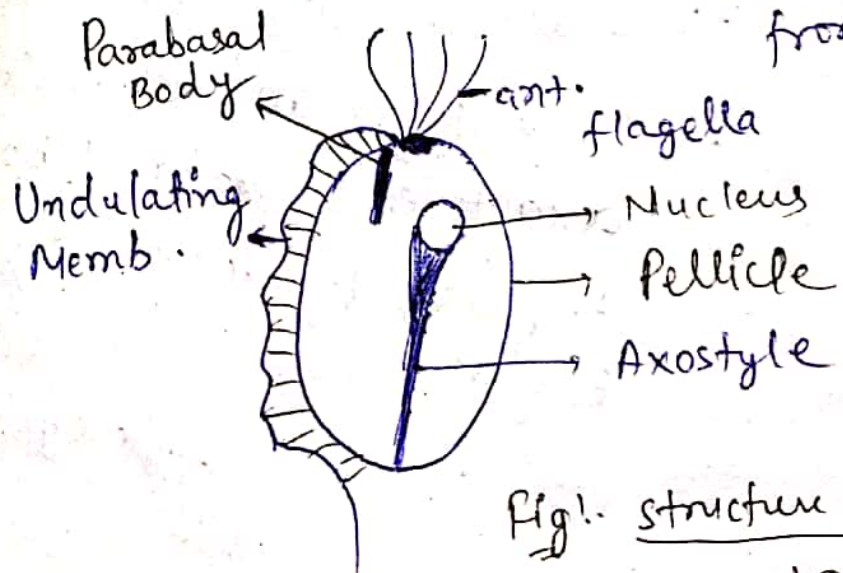 Parabasal
Body
ant.
flagella
Undulating
Memb.
Nucleus
Pellicle
Axostyle
Fig!. structure